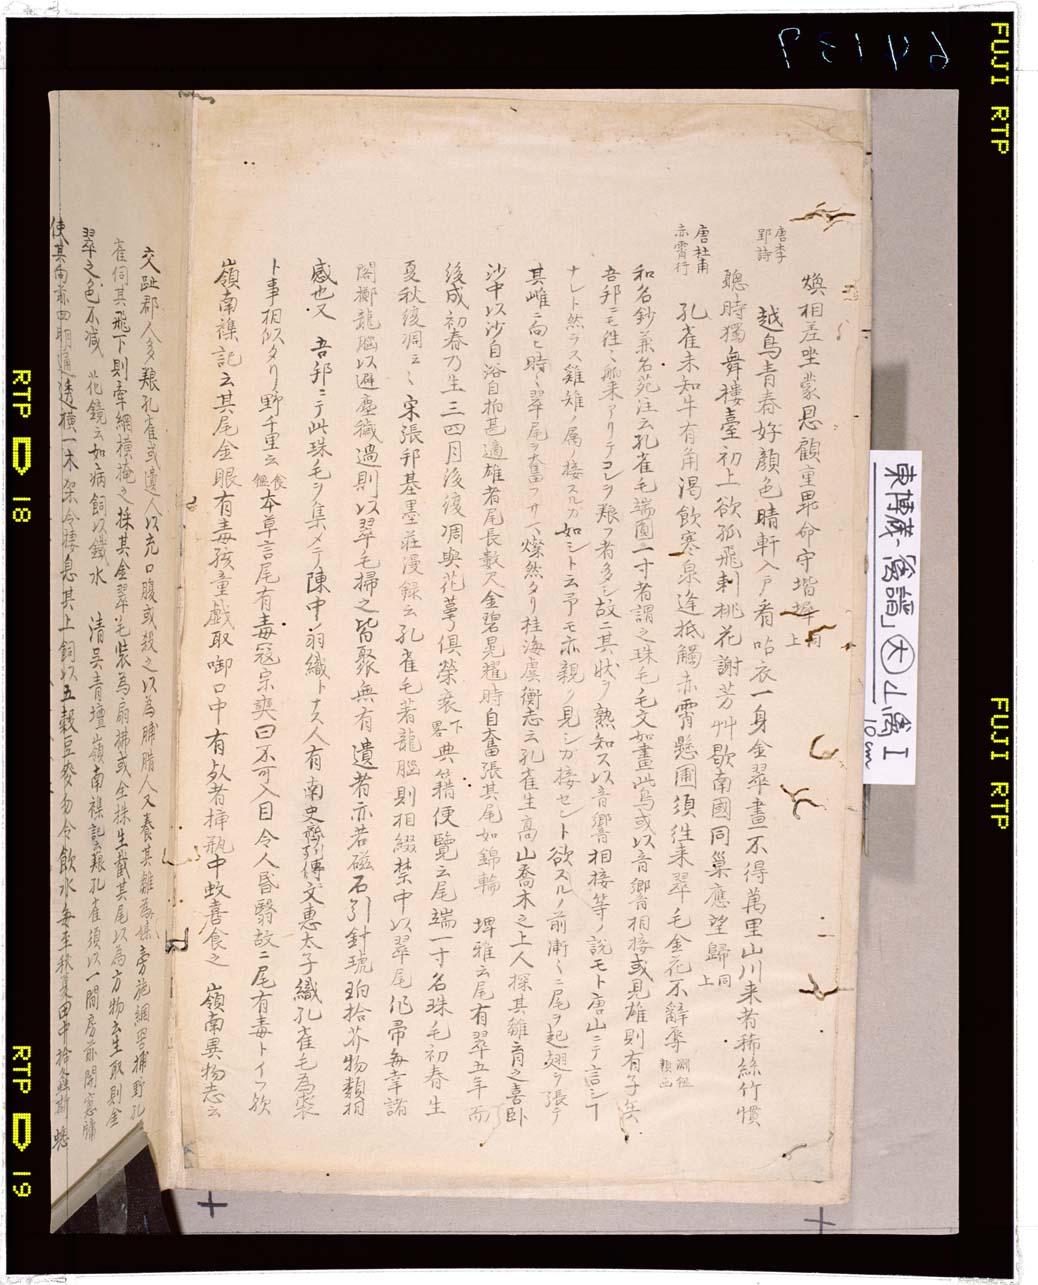 煥相差坐蒙恩顧重畢命守堦墀同上
唐李郢詩
越鳥青春好顔色晴軒入戸看呫衣一身金翠畫不得萬里山川来者稀絲竹慣
聴時獨舞樓臺初上欲孤飛刺桃花謝芳艸歇南國同巣應望歸同上
唐杜甫赤霄行
孔雀未知牛有角渇飲寒泉逢抵觸赤霄懸圃須往来翠毛金花不辭辱淵鑑類函
和名鈔兼名苑注云孔雀毛端圓一寸者謂之珠毛毛文如畫此鳥或以音響相接或見雄則有子矣
吾邦ニモ往〻舶来アリテコレヲ粮フ者多シ故ニ其状ヲ熟知ス以音響相接等ノ説モト唐山ニテ言シ
ナレト然ラス雞雉ノ属ノ接スルカ如シト云予モ亦親ク見シガ接セント欲スルノ前漸〻ニ尾ヲ起翅ヲ張テ
其雌ニ向ヒ時〻翠尾ヲ奮フサマ燦然タリ桂海虞衡志云孔雀生高山喬木之上人探其雛育之喜卧
沙中以沙自浴自拍甚適雄者尾長數尺金碧晃耀時自奮張其尾如錦輪 埤雅云尾有翠五年而
後成初春乃生三四月後復凋與花蕚俱榮衰下畧典籍便覧云尾端一寸名珠毛初春生
夏秋復凋云〻宋張邦基墨莊漫録云孔雀毛著龍脳則相綴禁中以翠尾作帚毎幸諸
閣擲龍脳以避塵穢過則以翠毛掃之皆聚無有遺者亦若磁石引針琥珀拾芥物類相
感也又 吾邦ニテ此珠毛ヲ集メテ陳中羽織トナス人有南史齊列傳文惠太子織孔雀毛為裘
ト事相似タリ野千里云食僊本草言尾有毒冦宗奭曰不可入目令人昏翳故ニ尾有毒トイフ欤
嶺南襍記云其尾金眼有毒孩童戲取啣口中有死者挿瓶中蚊喜食之 嶺南異物志云
交趾郡人多粮孔雀或遺人以充口腹或殺之以為脯腊人又養其雛為媒旁施網罟捕野孔
雀伺其飛下則牽網横掩之採其金翠毛装為扇拂或全株生截其尾以為方物云生取則金
翠之色不減 花鏡云如病飼以鐵水 清呉青壇嶺南襍記云粮孔雀須以一間房前開窓牖
使其向亦四明通透横一木架令棲息其上飼以五穀豆麥勿令飲水毎至秋夏田中拾
東博蔵「鳥譜」大 山鳥I
10cm
64137
FUJI RTP
FUJI RTP
FUJI RTP
RTP 18
RTP 19